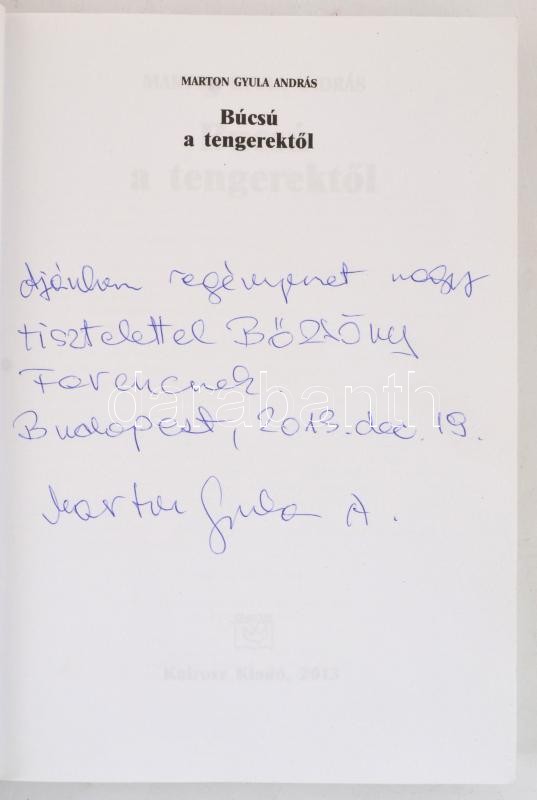 MARTON GYULA ANDRÁS
Búcsú
a tengerektől
Ajánlom regényemet nagy
tisztelettel Bőzsöny
Ferencnek.
darabanth
Budapest, 2013. dec. 19.
Marton Gyula A.
Kairosz Kiadó, 2013